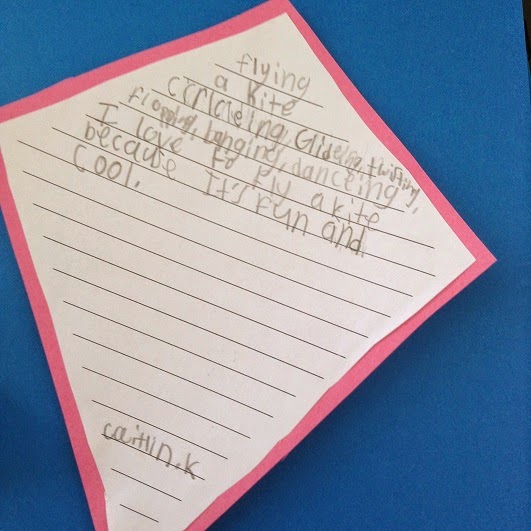 flying
a kite
corcleing, Glideing, twisting,
flopping, banging, danceing
I love to fly a kite
because It's fun and
Cool.
caitlin.k